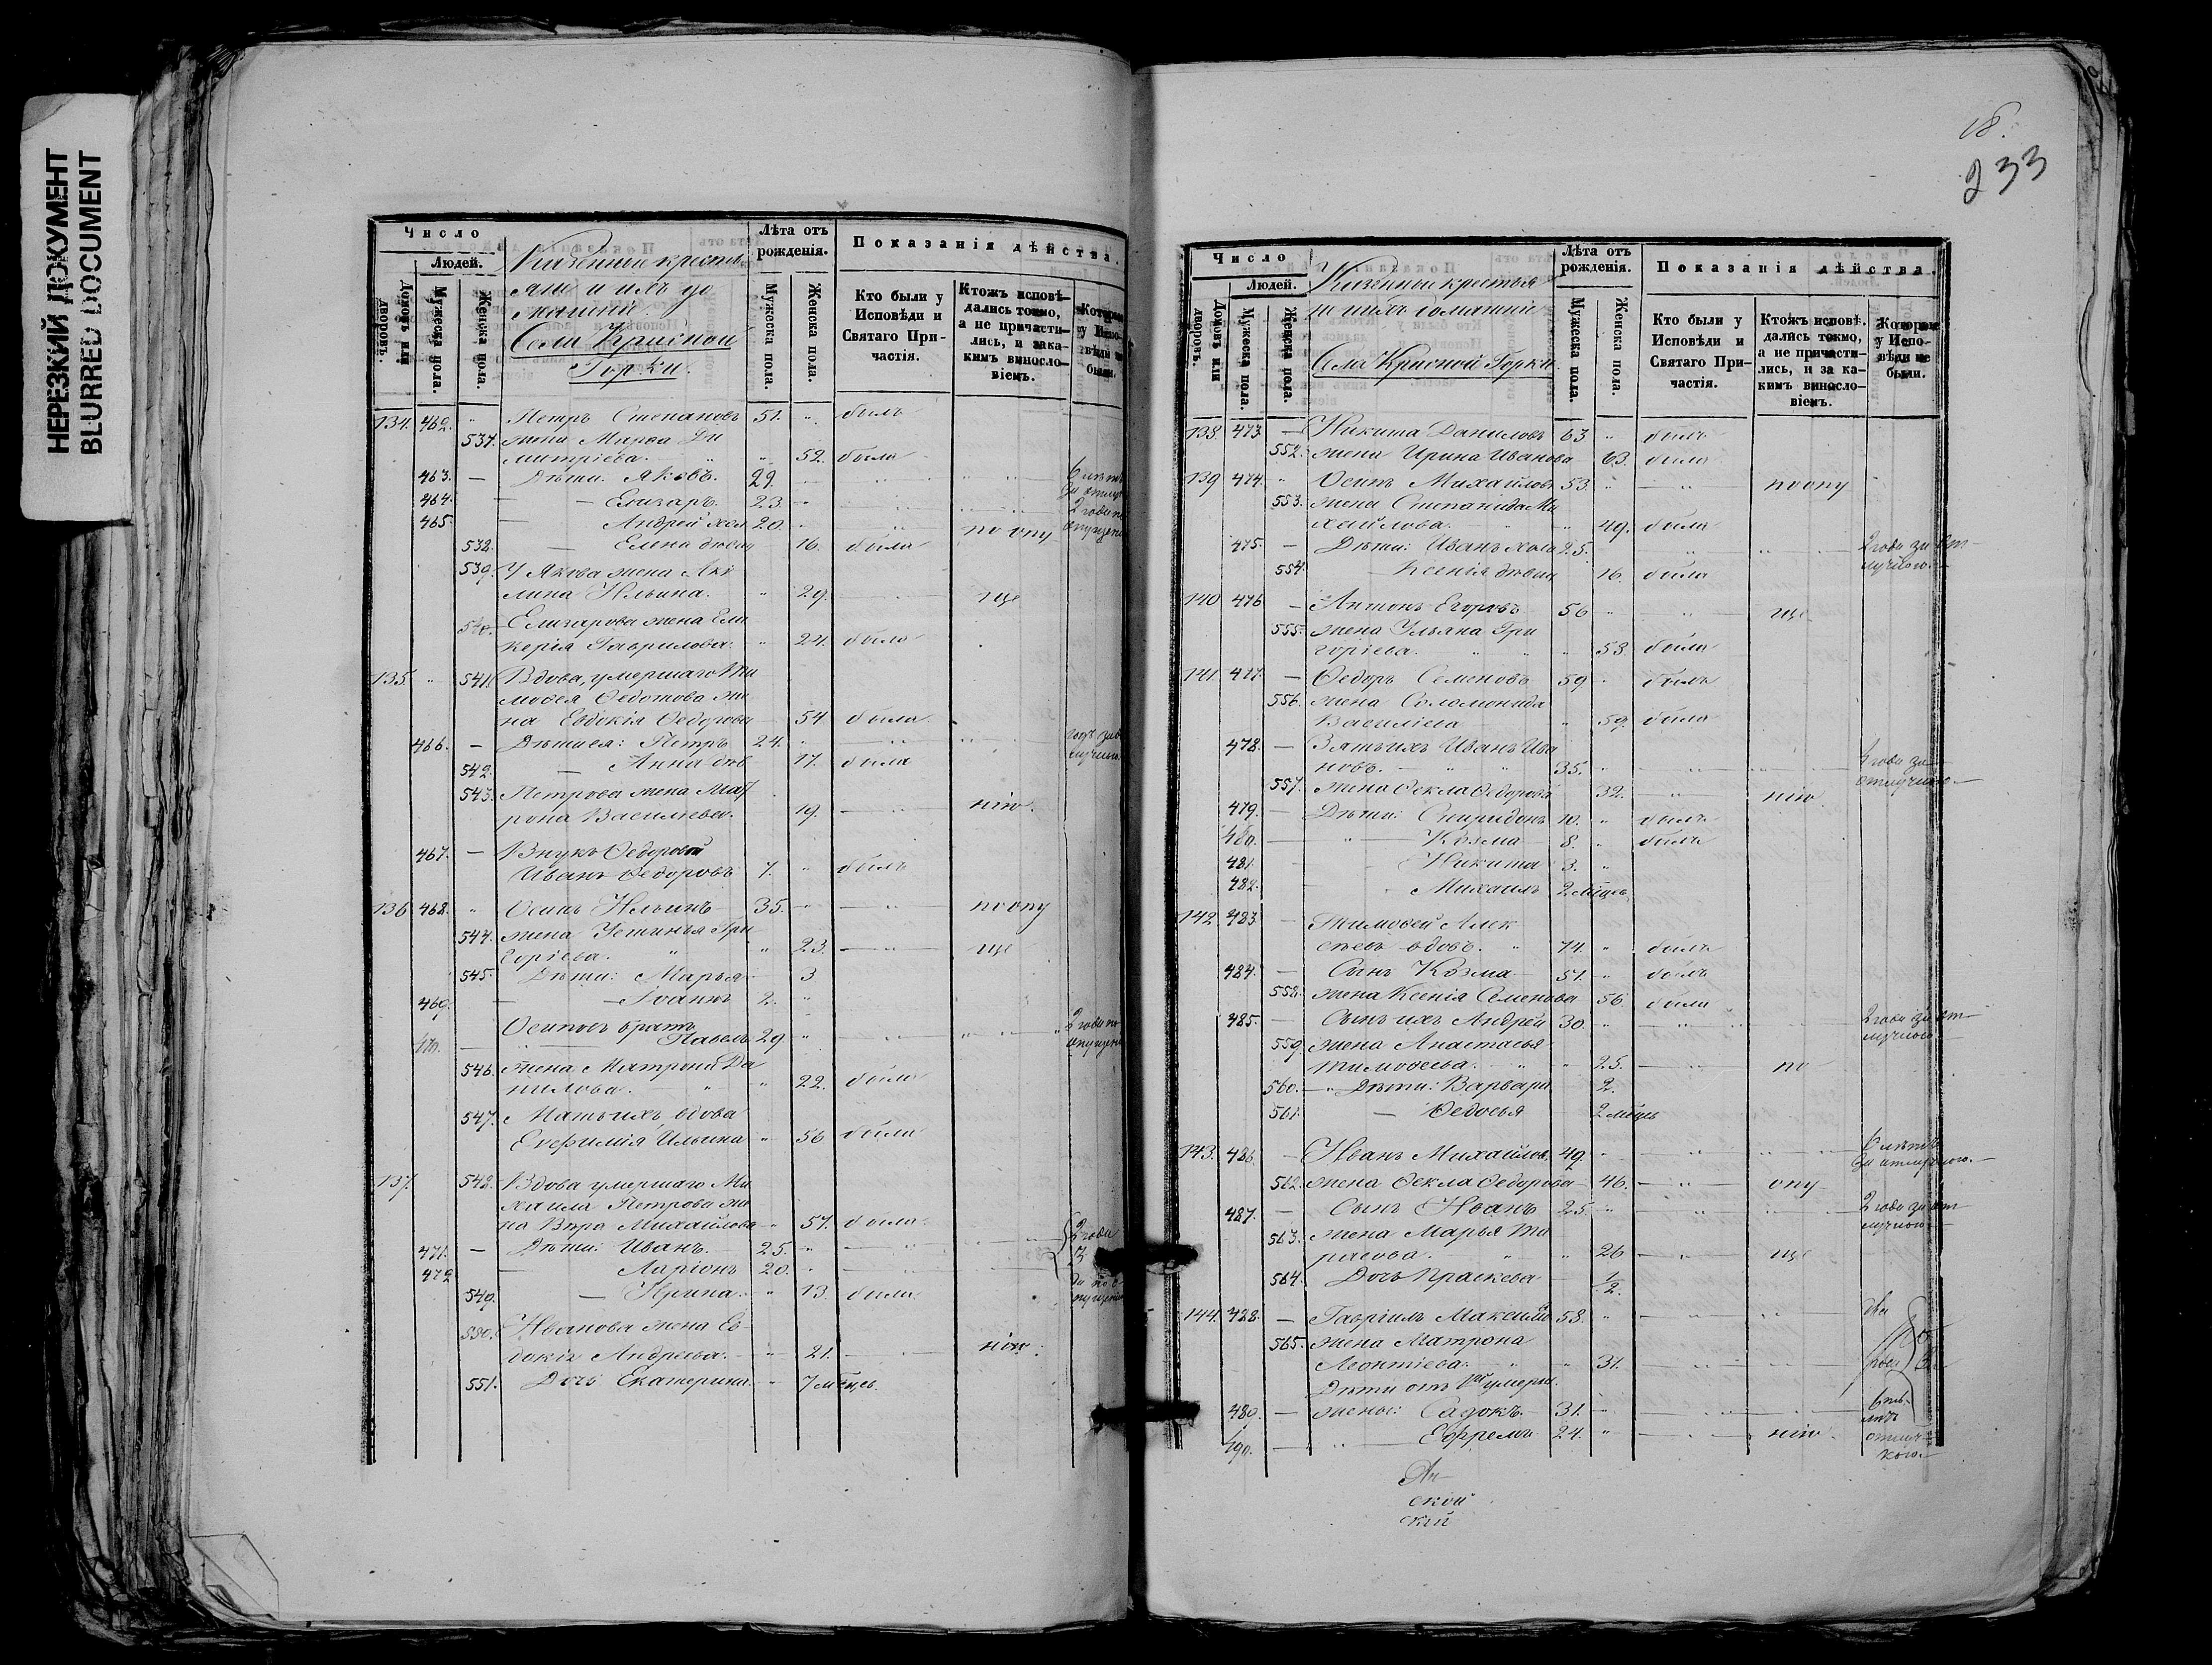 НЕРЕЗКИЙ ДОКУМЕНТ
BLURRED DOCUMENT
Число
Людей.
Домовъ или дворовъ.
Мужеска пола.
Женска пола.
Казенныи кресть
яне и ихъ до
машніе.
Села Красной
Горки.
Лѣта отъ рожденія.
Мужеска пола.
Женска пола.
Показанія дѣйства.
Кто были у Исповѣди и Святаго Причастія.
Ктожъ исповѣдались токмо, а не причастились, и за какимъ винословіемъ.
Которые у Исповѣди не были.
134. 462. " Петръ Степановъ 51. " былъ
537. жена Марѳа Ди
митріева. " 52. была
463. — Дѣти: Яковъ. 29. 6 лѣтъ
464. — Елизаръ. 23. за отлуч
465. — Андрей хол 20. 2 года по опущен
532. — Елена дѣвка 16. была по опу
539. У Якова жена Аки
лина Ильина. " 29. ще
540. Елизарова жена Гли
керія Гаврилова. " 24. была
135. " 541. Вдова, умершаго Ти
моѳея Ѳедотова же
на Евдокія Ѳедорова 54 была
466. — Дѣти ея: Петръ 24.
542. — Анна дѣв 17. была
543. Петрова жена Мат
рона Васильева. 19. нію.
467. — Внукъ Ѳедоровой
Иванъ Ѳедоровъ 7. " былъ
136 468. " Осипъ Ильинъ 35. " по опу
544. жена Устинья Гри
горіева. " 23. ще
545. Дѣти: Марья 3
469. — Іоаннъ 2. "
Осиповъ братъ
470. — Павелъ 29 " 2 года по опущен
546. жена Матрона Да
нилова. " 22. была
547. Мать ихъ вдова
Евфимія Ильина " 56 была
137. 542. Вдова умершаго Ми
хаила Петрова же
на Вѣра Михайлова " 57. была.
471. — Дѣти: Иванъ. 25. " 2 года
472 — Ларіонъ 20.
549. — Ирина. " 13 была
550. Иванова жена Ев
докія Андреева. " 21. нію.
551. Дочь Екатерина " 7 мѣцев.
18.
233
Число
Людей.
Домовъ или дворовъ.
Мужеска пола.
Женска пола.
Казенныи крестья
не и ихъ домашніе
Села Красной Горки.
Лѣта отъ рожденія.
Мужеска пола.
Женска пола.
Показанія дѣйства.
Кто были у Исповѣди и Святаго Причастія.
Ктожъ исповѣдались токмо, а не причастились, и за какимъ винословіемъ.
Которые у Исповѣди не были.
138. 473. — Никита Даниловъ 63 " былъ
552. жена Ирина Иванова 63. была
139 474. " Осипъ Михайловъ 53. " по опу
553. жена Степанида Ми
хайлова. " 49. была
475. — Дѣти: Иванъ хола 25. 2 года за от
лучкою.
554. Ксенія дѣвка 16. была
140 476 — Антонъ Егоровъ 56 " ще
555. жена Ульяна Гри
горіева. " 53. была
141. 477. — Ѳедоръ Семеновъ 59 " былъ
556. жена Соломонида
Василіева " 59. была
478. — Зять ихъ Иванъ Ива
новъ. 35. " года за
отлучкою
557. жена Ѳекла Ѳедорова 32. " нію
479. — Дѣти: Спиридонъ 10. " былъ
480. " Козма 8. " былъ
481. — Никита 3. "
482. Михаилъ 2 мѣцев.
142 483 — Тимоѳей Алек
сѣевъ вдовъ. " 74. " былъ
484. — Сынъ Козма 51. " былъ
558. жена Ксенія Семенова 56 была
485. — Сынъ ихъ Андрей 30. " 2 года за от
лучкою
559. жена Анастасья
Тимоѳеева. " 25. по
560. " Дѣти: Варвара 2.
561. — Ѳедосья 2 мѣцев
143. 486. — Иванъ Михайлов. 49. " 6 лѣтъ
за отлучкою.
562. жена Ѳекла Ѳедорова 46. " опу
487. — Сынъ Иванъ 25. " 2 года за от
лучкою
563. жена Марья Та
расова. " 26 " ще
564. Дочь Праскева 1/2.
144. 488. — Гаврiилъ Максимов 53. " два
565. жена Матрона
Леонтіева. " 31. года
Дѣти отъ 1й умерш.
489. — жены: Садокъ. 31. "
490. — " Ефремъ 24. " нію
отлуч
кою.
Ан
ской
скій